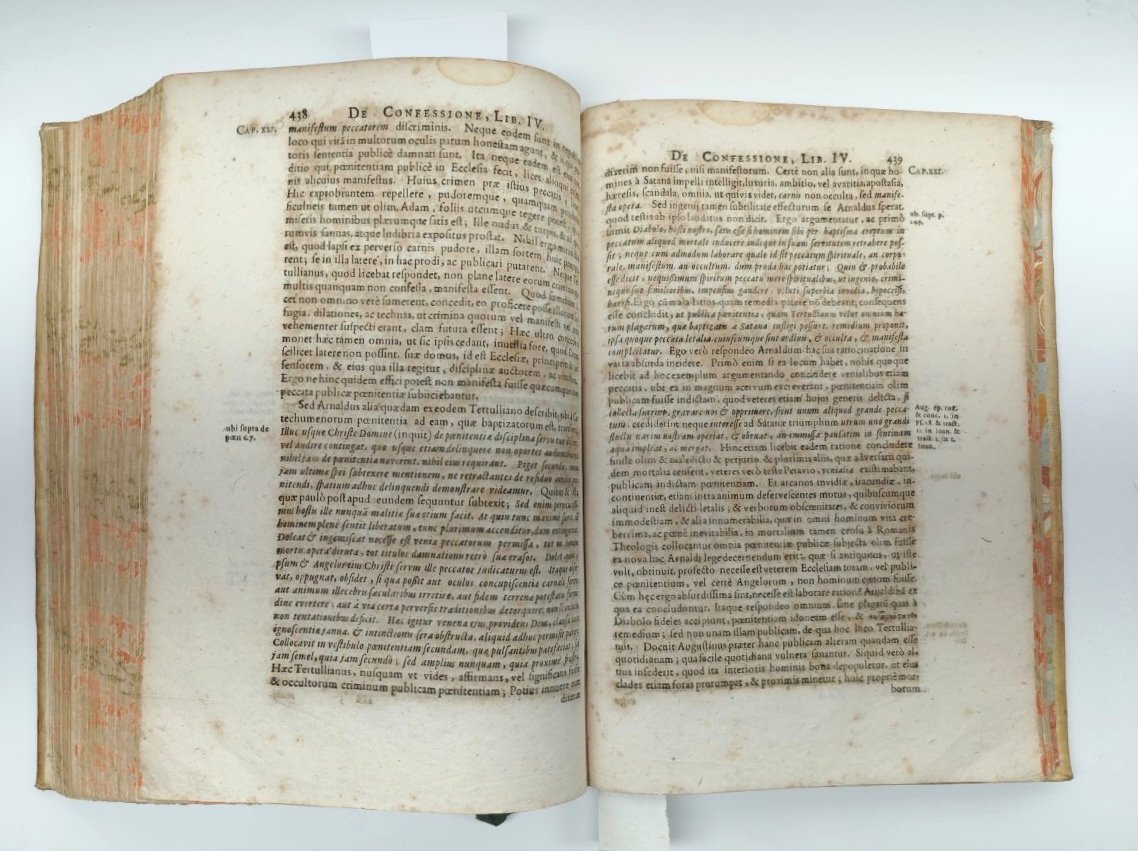 438 DE CONFESSIONE, LIB. IV.
CAP. XXI.
manifestum peccatorem discriminis. Neque eodem sunt in
loco qui vitā in multorum oculis parum honestam agunt, &
toris sententia publicè damnati sunt. Ita neque eadem est
ditio qui pœnitentiam publicè in Ecclesia fecit, licet alioqui
nis alicuius manifestus. Huius crimen præ istius peccatis
Hic exprobrantem repellere, pudoremque, quamquam
ficulneis tamen ut olim Adam, foliis utcumque tegere potest
miseris hominibus plærumque satis est; Ille nudas & turpis, &
tumvis sannas, atque ludibria expositus prostat. Nihil ergo
est, quod lapsi ex perverso carnis pudore, illam sortem huic
rent; se in illa latere, in hac prodi, ac publicari putarent. Neque
tullianus, quod licebat respondet, non plane latere eorum
multis quanquam non confessa, manifesta essent. Quod
cet non omnino verè sumerent, concedit, eo proficere posse
fugia, dilationes, ac technas, ut crimina quorum vel manifesti
vehementer suspecti erant, clam futura essent; Hæc ultro
monet hæc tamen omnia, ut sic ipsis cedant, inutilia fore, quod Deum
scilicet latere non possint, suæ domus, id est Ecclesiæ, principem
sensorem, & eius qua illa regitur, disciplinæ auctorem, ac vindicem.
Ergo ne hinc quidem effici potest non manifesta fuisse quæcumque
peccata publicæ pœnitentiæ subiiciebantur.
Sed Arnaldus alia quædam ex eodem Tertulliano describit, ubi à
techumenorum pœnitentia ad eam, quæ baptizatorum est,
ubi supra de
pœn c.7.
Illuc usque Christe Domine (inquit) de pœnitentia disciplina servis tuis
vel audire contingat, quo usque etiam delinquere non oportet audientibus
nihil jam de pœnitentia noverint, nihil eius requirant. Piget secunda
jam ultimæ spei subtexere mentionem, ne retractantes de residuo auxilio
nitendi, spatium adhuc delinquendi demonstrare videamur.
quæ paulò post apud eundem sequuntur subtexit; Sed enim pervicacis-
mus hostis ille nunquā malitiæ suæ otium facit. At quin tunc maximè
hominem plenè sentit liberatum, tunc plurimum accenditur, dum
Doleat & ingemiscat necesse est venia peccatorum permissa, tot in
mortis opera diruta, tot titulos damnationis retrò suæ erasos. Dolet quod
psum & Angelos eius Christi servus ille peccator judicaturus est. Itaque
vat, oppugnat, obsidet, si qua possit aut oculos concupiscentia carnali
aut animum illecebris sæcularibus irretire, aut fidem terrenæ potestatis
dine evertere; aut à via certa perversis traditionibus detorquere; non
non tentationibus deficit. Hæc igitur venena ejus providens Deus, clausa
ignoscentiæ janua, & intinctionis sera obstructa, aliquid adhuc permisit patere.
Collocavit in vestibulo pœnitentiam secundam, quæ pulsantibus patefaciat,
jam semel, quia jam secundò; sed amplius nunquam, quia proximè
Hæc Tertullianus, nusquam ut vides, affirmans, vel significans
& occultorum criminum publicam pœnitentiam; Potius innuere
DE CONFESSIONE, LIB. IV. 439
CAP. XXI.
dixerim non fuisse, nisi manifestorum. Certè non alia sunt, in quæ ho-
mines à Satana impelli intelligit, luxuria, ambitio, vel avaritia, apostasia,
hæresis, scandala; omnia, ut quivis videt, carno non occulta, sed manife-
sta opera. Sed ingenij tamen subtilitate effecturum se Arnaldus sperat,
quod testis ab ipso laudatus non dicit. Ergo argumentatur, ac primò
ub. supr. p.
sumit Diabolo, hosti nostro, satis esse si hominem sibi per baptisma ereptum in
peccatum aliquod mortale inducere indeque in suam servitutem retrahere pos-
sit; neque eum admodum laborare quale id sit peccatum spirituale, an corpo-
rale, manifestum, an occultum, dum præda hac potiatur; Quin & probabile
esse dicit, nequissimum spiritum peccatis merè spiritualibus, ut ingenio, crimi-
nique suo similioribus, impensius gaudere, veluti superbia, invidia, hypocrisi,
hæresi. Ergo cū mala latius, quam remedia patere nō deberent, consequens
esse concludit, ut publica pœnitentia, quam Tertullianus velut omnium hæ-
rum plagarum, quæ baptizatis a Satana infligi possunt, remedium proponit,
ipsa quoque peccata letalia cuiuscumque sint ordinis, & occulta, & manifesta
complectatur. Ego verò respondeo Arnaldum hac sua ratiocinatione in
varia absurda incidere. Primò enim si ea locum habet, nobis quoque
licebit ad hoc exemplum argumentando concludere venialibus etiam
peccatis, ubi ea in magnum acervum excreverant, pœnitentiam olim
publicam fuisse indictam, quod veteres etiam hujus generis delicta, si
collecta fuerint, gravare nos & opprimere, sicut unum aliquod grande pecca-
Aug. ep. 108.
& conc. 1. in
tum, crediderint neque interesse ad Satanæ triumphum utrum uno grandi
fluctu navim nostram operiat, & obruat, an immissa paulatim in sentinam
aqua impleat, ac mergat. Hinc etiam licebit eadem ratione concludere
fuisse olim & maledicto & perjurio, & plurimis aliis, quæ adversarij qui-
dem mortalia censent, veteres verò teste Petavio, venialia existimabant,
publicam indictam pœnitentiam. Et arcanos invidiæ, iracundiæ, in-
continentiæ, etiam intra animum defervescentes motus, quibuscumque
aliquid inest delicti letalis; & verborum obscœnitates, & conviviorum
immodestiam, & alia innumerabilia, quæ in omni hominum vita cre-
berrima, ac pœne inevitabilia, in mortalium tamen censu à Romanis
Theologis collocantur omnia pœnitentiæ publicæ subjecta olim fuisse
ex nova hac Arnaldi lege decernendum erit; quæ si antiquitus, ut iste
vult, obtinuit, profecto necesse est veterem Ecclesiam totam, vel publi-
cè pœnitentium, vel certè Angelorum, non hominum cœtum fuisse.
Cùm hęc ergo absurdissima sint, necesse est laborare rationē Arnaldinā ex
qua ea concluduntur. Itaque respondeo omnium, sine plagarū quas à
Diabolo fideles accipiunt, pœnitentiam idoneam esse, &
remedium; sed non unam illam publicam, de qua hoc loco Tertullia-
nus. Docuit Augustinus præter hanc publicam alteram quandam esse
quotidianam; qua facile quotidiana vulnera sanantur. Siquid verò al-
tius insederit, quod ita interioris hominis bona depopuletur, ut eius
clades etiam foras prorumpat, & proximis minetur; huic propriè mor-
borum